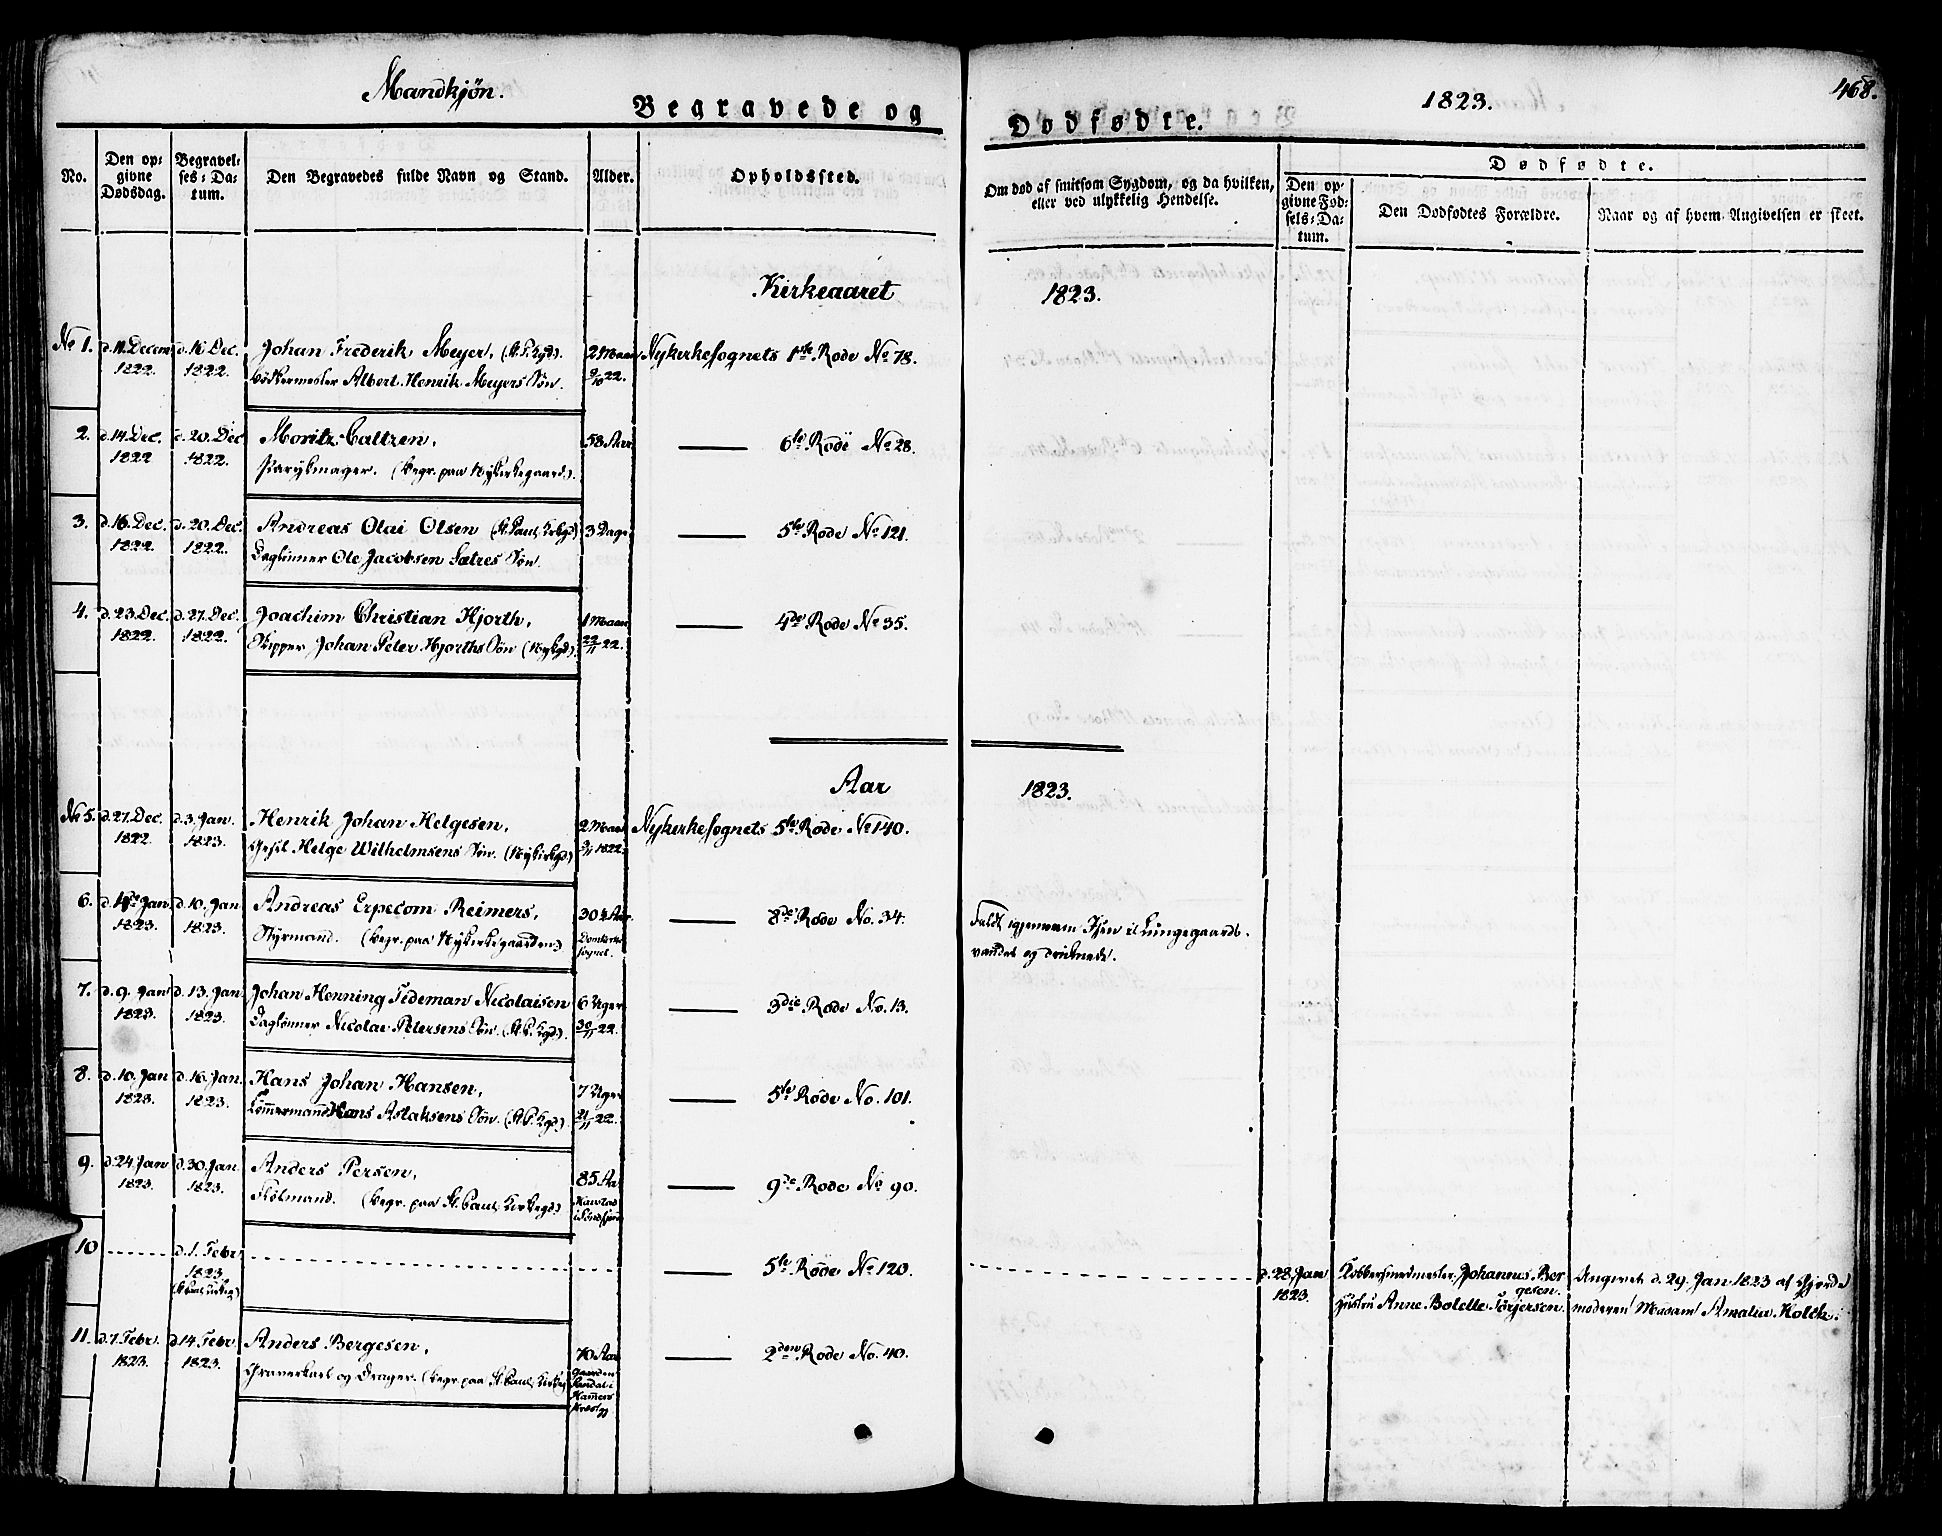 Mandkjøn.
Begravede og
Dødfødte.
1823.
468.
No.
Den opgivne Dødsdag.
Begravelses-Datum.
Den Begravedes fulde Navn og Stand.
Alder.
Opholdssted.
Om død af smitsom Sygdom, og da hvilken,
eller ved ulykkelig Hendelse.
Dødfødte.
Den opgivne Fødsels-Datum.
Den Dødfødtes Forældre.
Naar og af hvem Angivelsen er skeet.
Kirkeaaret 1823.
No 1. d. 11. Decem d. 16 Dec. Johan Frederik Meyer, (St. P. Kgd). 2 Maan Nykirkesognets 1ste Rode No 78.
1822. 1822. Bødkermester Albert Henrik Meyers Søn. 9/10 22.
2. d. 14. Dec. d. 20. Dec Moritz Caltzen, 58 Aar — 6te Rode No 28.
1822 1822. Parykmager. (begr. paa Nykirkegaard).
3. d. 16. Dec. d. 20. Dec. Andreas Olai Olsen (St. Paul Kirkgd) 3 Dage — 5te Rode No 121.
1822. 1822. Daglønner Ole Jacobsen Sætres Søn.
4. d. 23. Dec. d. 27. Dec. Joachim Christian Hjorth, 1 Maan — 4de Rode No 35.
1822. 1822. Skipper Johan Peter Hjorths Søn (Nykgd). 22/11 22.
Aar 1823.
No 5. d. 27. Dec. d. 3. Jan. Henrik Johan Helgesen, 2 Maan Nykirkesognets 5te Rode No 140.
1822. 1823. Helge Wilhelmsens Søn. (Nykirkgd) 1822.
6. Jan d. 10. Jan Andreas Erpecom Reimers, 30 1/2 Aar. — 8de Rode No. 34. Faldt igjennem Isen i Lungegaards-
1823. 1823. Styrmand. (begr. paa Nykirkegaarden) Domkirke sognet. vandet og druknede.
7. d. 9. Jan d. 13. Jan Johan Henning Tideman Nicolaisen 6 Uger — 3die Rode No. 13.
1823. 1823. Daglønner Nicolai Petersens Søn. (St. P. Kgd). 30/11 22.
8. d. 10. Jan d. 16. Jan. Hans Johan Hansen, 7 Uger — 5te Rode No. 101.
1823. 1823. Tømmermand Hans Aslaksens Søn. (St. P. Kgd) 21/11 22.
9. d. 24. Jan d. 30. Jan. Anders Persen, 85 Aar — 9de Rode No 90.
1823. 1823. (begr. paa St. Paul Kirkegd) i Søndfjord
10 d. 1. Febr — 5te Rode No 120. d. 28. Jan Kobbersmedmester Johannes Bor Angivet d. 29. Jan 1823 af Gjorde
1823 (St. Paul Kirkeg) 1823. gesen. Hustru Anne Bolette Torjersen. moderen Madam Amalia Holck.
11. d. 7. Febr. d. 14. Febr Anders Bergesen, 70 Aar — 2den Rode No. 40.
1823. 1823. Graverkarl og Drager. (begr. paa St. Paul Kirkeg) Gaarden Sandal i Hammers